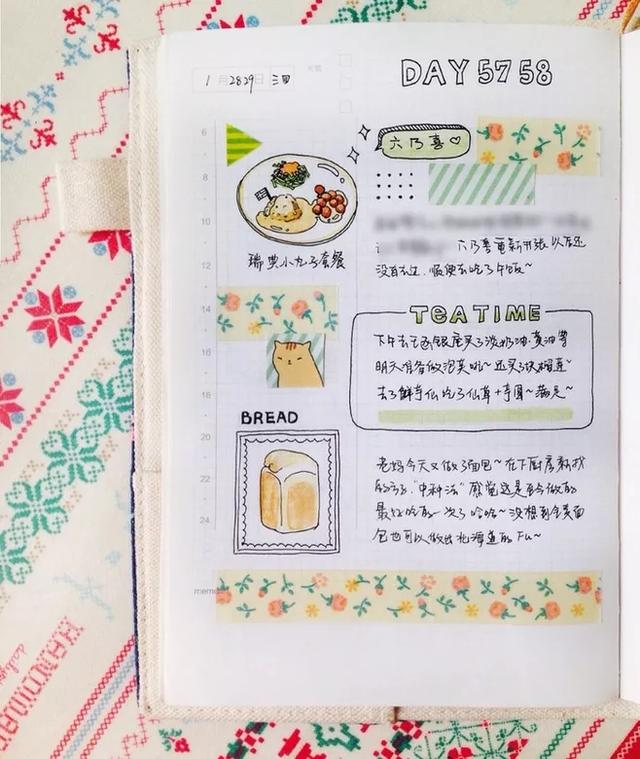 1月2829日 三四
DAY 57 58
六乃喜♡
六乃喜重新开张以后还
没有去过.顺便去吃了午饭~
瑞典小丸子套餐
TEATIME
下午去 银座买了淡奶油.黄油等
明天准备做泡芙啦~还买了快
去了鲜芋仙吃了仙草+芋圆~满足~
BREAD
老妈今天又做了面包~在下厨房新找
的方子."中种法"感觉这是至今做的
最好吃的一次了哈哈~没想到全麦面
包也可以做出北海道的Fu~
6
8
10
12
14
16
18
20
22
24
memo